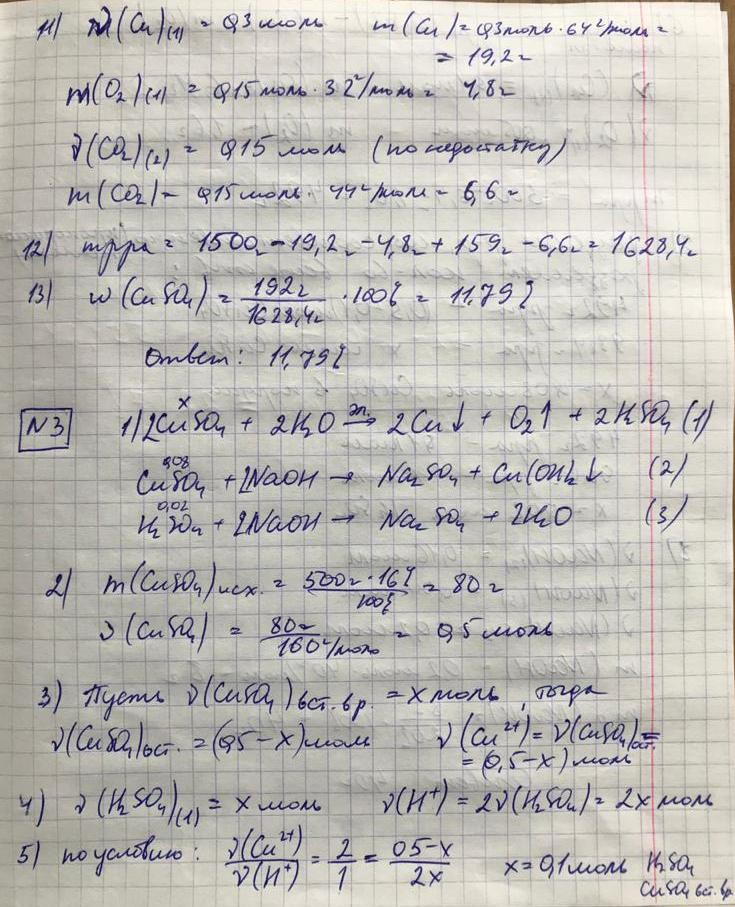 11) ν(Cu)(1) = 0,3 моль m(Cu) = 0,3 моль · 64 г/моль =
= 19,2 г
m(O₂)(1) = 0,15 моль · 32 г/моль = 4,8 г
ν(CO₂)(2) = 0,15 моль (по недостатку)
m(CO₂) = 0,15 моль · 44 г/моль = 6,6 г
12) mр-ра = 1500г - 19,2г - 4,8г + 159г - 6,6г = 1628,4г
13) ω(CuSO₄) = 192г / 1628,4г · 100% = 11,79%
Ответ: 11,79%
N3 1) 2CuSO₄ + 2H₂O эл.→ 2Cu↓ + O₂↑ + 2H₂SO₄ (1)
x
0,08
CuSO₄ + 2NaOH → Na₂SO₄ + Cu(OH)₂↓ (2)
0,02
H₂SO₄ + 2NaOH → Na₂SO₄ + 2H₂O (3)
2) m(CuSO₄)исх. = 500г · 16% / 100% = 80 г
ν(CuSO₄) = 80г / 160 г/моль = 0,5 моль
3) Пусть ν(CuSO₄)вст. в р. = x моль, тогда
ν(CuSO₄)ост. = (0,5-x) моль ν(Cu²⁺) = ν(CuSO₄)ост. =
= (0,5-x) моль
4) ν(H₂SO₄)(1) = x моль ν(H⁺) = 2ν(H₂SO₄) = 2x моль
5) по условию: ν(Cu²⁺) / ν(H⁺) = 2 / 1 = 0,5-x / 2x x = 0,1 моль H₂SO₄
CuSO₄ вст. вр